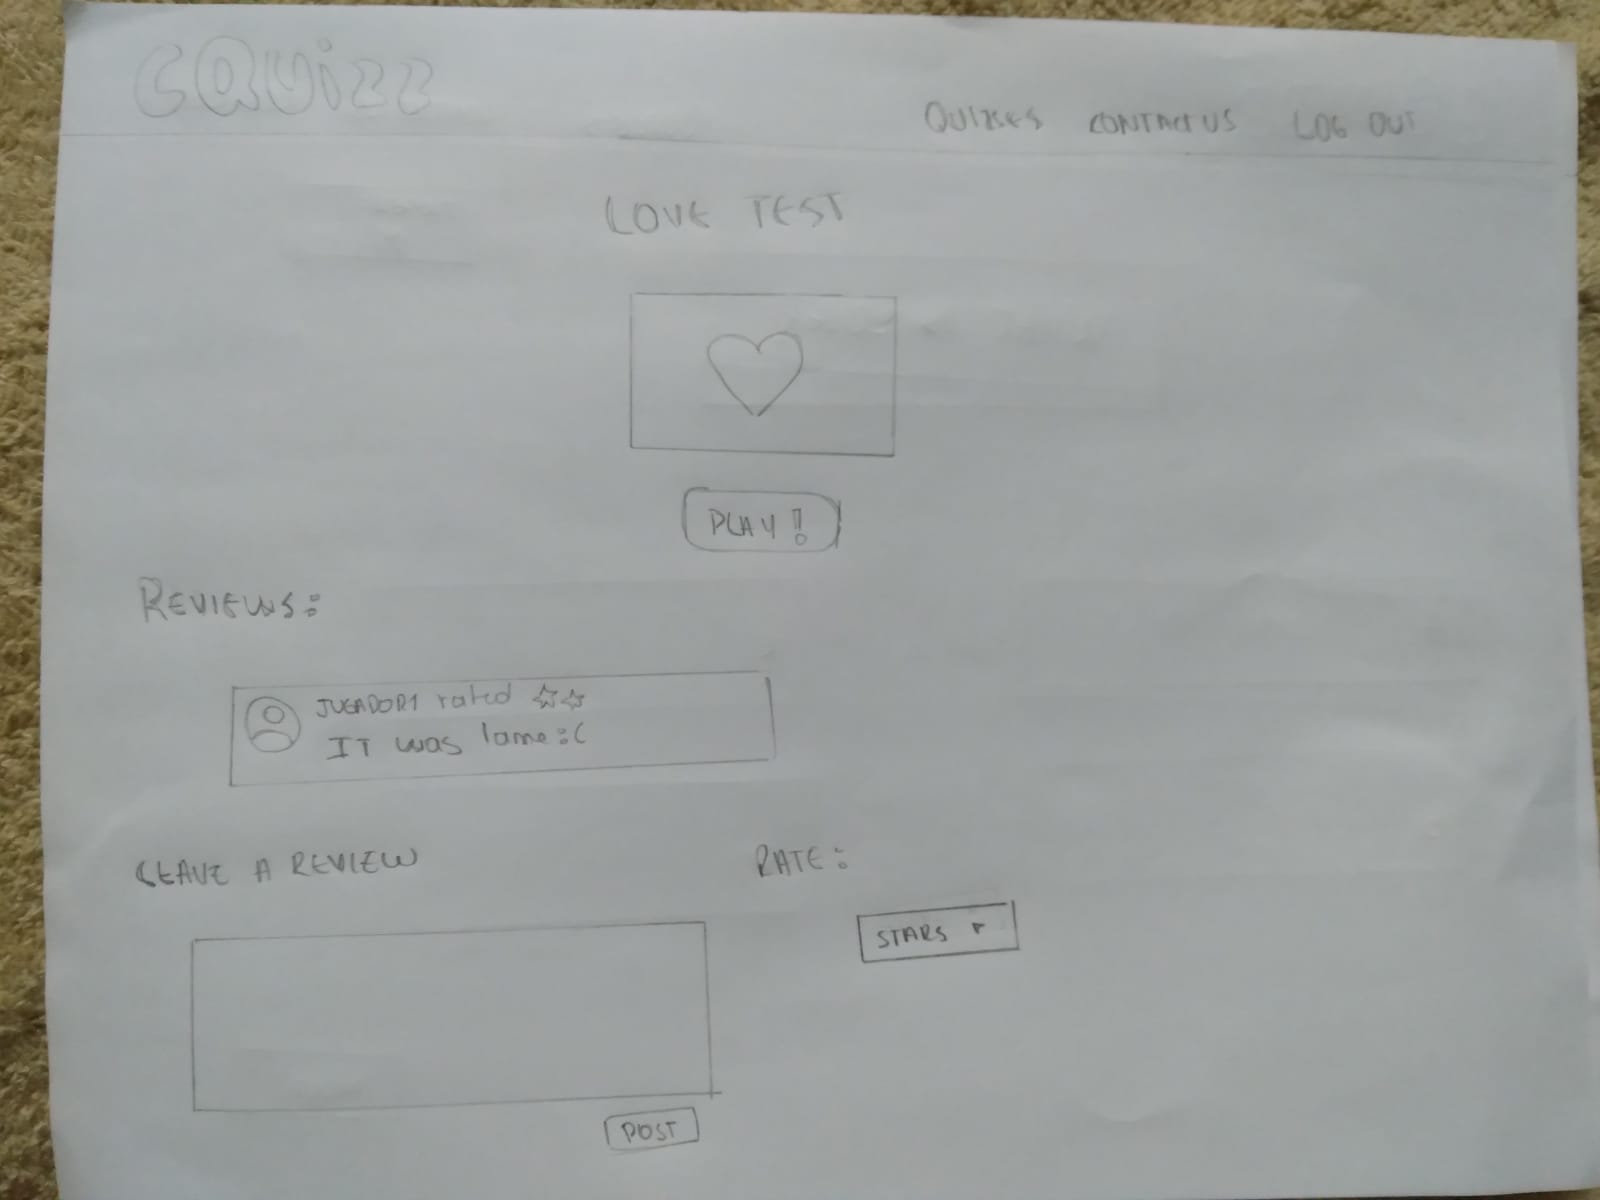 CQUizz
QUIZSES CONTACT US LOG OUT
LOVE TEST
PLAY!
REVIEWS:
JUGADOR1 rated ☆☆
IT was lame :(
LEAVE A REVIEW
RATE:
STARS ▾
POST